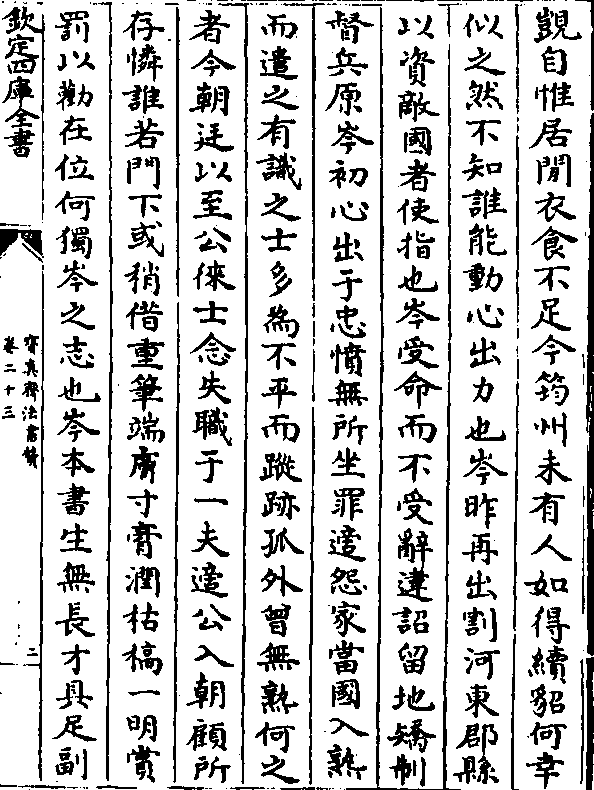 覬自惟居閒衣食不足今筠州未有人如得續貂何幸
似之然不知誰能動心出力也岑昨再出割河東郡縣
以資敵國者使指也岑受命而不受辭違詔留地矯制
督兵原岑初心出于忠憤無所坐罪適怨家當國入熟
而遣之有識之士多為不平而蹤跡孤外曾無熟何之
者今朝廷以至公徠士念失職于一夫適公入朝顧所
存憐誰若門下或稍借重筆端膚寸膏潤枯槁一明賞
罰以勸在位何獨岑之志也岑本書生無長才具足副
欽定四庫全書
寶真齋法書贊
卷二十三
二